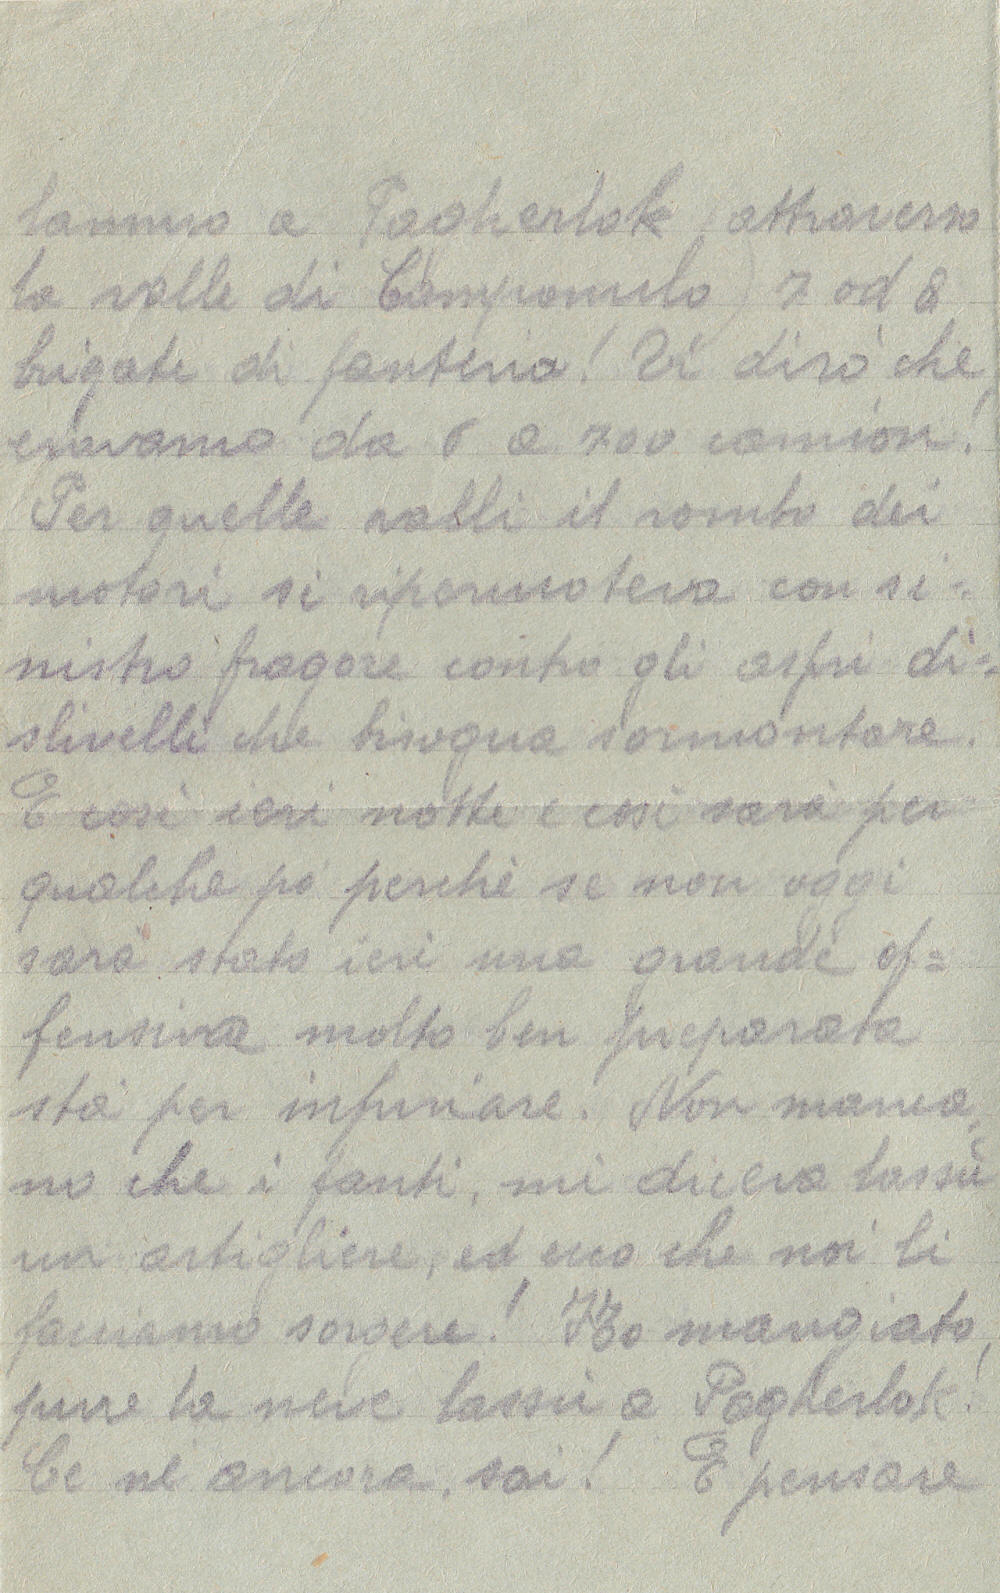 tammo a Pagherlok (attraverso
la valle di Campomulo) 7 od 8
brigate di fanteria! Vi dirò che
eravamo da 6 a 700 camion!
Per quelle valli il rombo dei
motori si ripercoteva con si=
nistro fragore contro gli aspri di=
slivelli che bisogna sormontare.
E così ieri notte e così sarà per
qualche pò perchè se non oggi
sarà stato ieri una grande of=
fensiva molto ben preparata
stà per infuriare. Non manca,
no che i fanti, mi diceva lassù
un artigliere, ed ecco che noi li
facciamo sorgere! Ho mangiato,
pure la neve lassù a Pagherlok!
Ce nè ancora, sai! E pensare